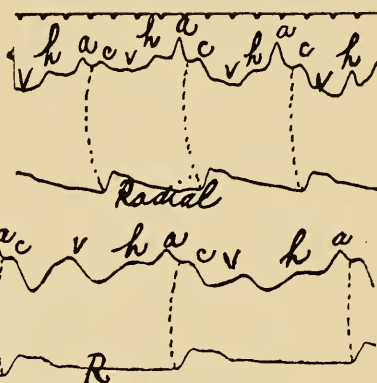 v h a c v h a c v h a c v h
Radial
a c v h a c v h a
R